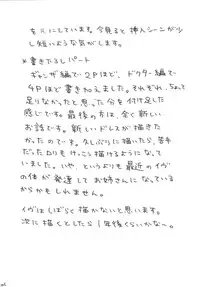 を元にしています。今見ると挿入シーンが少
し短いような気がします。
*書き下ろしパート
ギャンザ編で2Pほど、ドクター編で
4Pほど書き加えました。それぞれ、
足りなかったと思った分を付け足した
感じです。最後の方は、全く新しい
お話です。新しいドレスが描きた
かったのです。久しぶりに描いたら、苦手
だった人もけっこう描けるようになって
いました。いや、というよりも最近のイヴ
の体が発達してお姉さんになっている
からかもしれません。
イヴはしばらく描かないと思います。
次に描くとしたら1年後くらいかな〜。